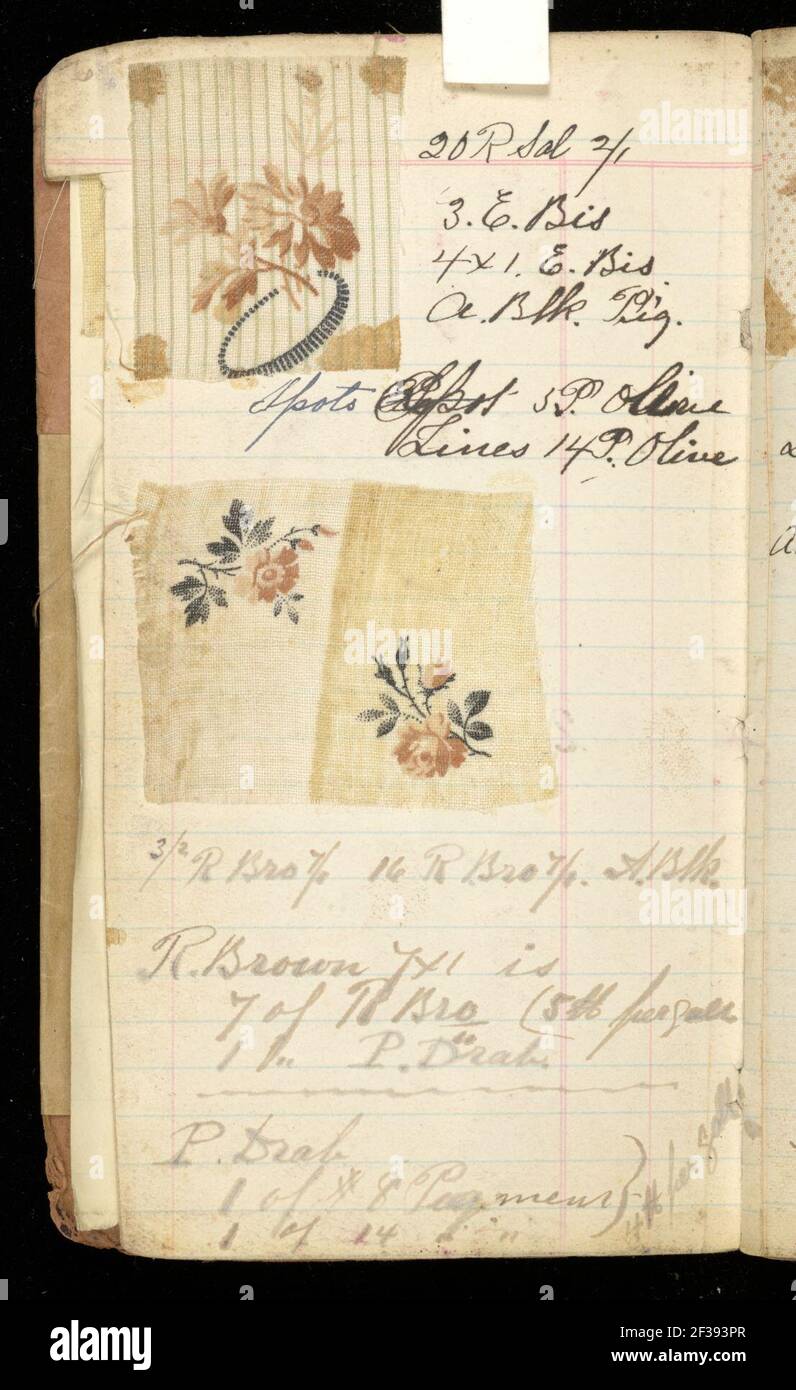 20 R Sal 2/1
3. E. Bis
4 x 1. E. Bis.
A. Blk. Pig.
Spots 5 P. Olive
Lines 14 P. Olive
3/2 R Bro 7/1 16 R Bro 7/1. A. Blk.
R. Brown 7x1 is
7 of R Bro (5 lb per gall
1 " P. Drab.
P. Drab
1 of # 8 Pigment }
1 of 14 " "
4 lb per Gall
alamy
Image ID: 2F393PR
www.alamy.com